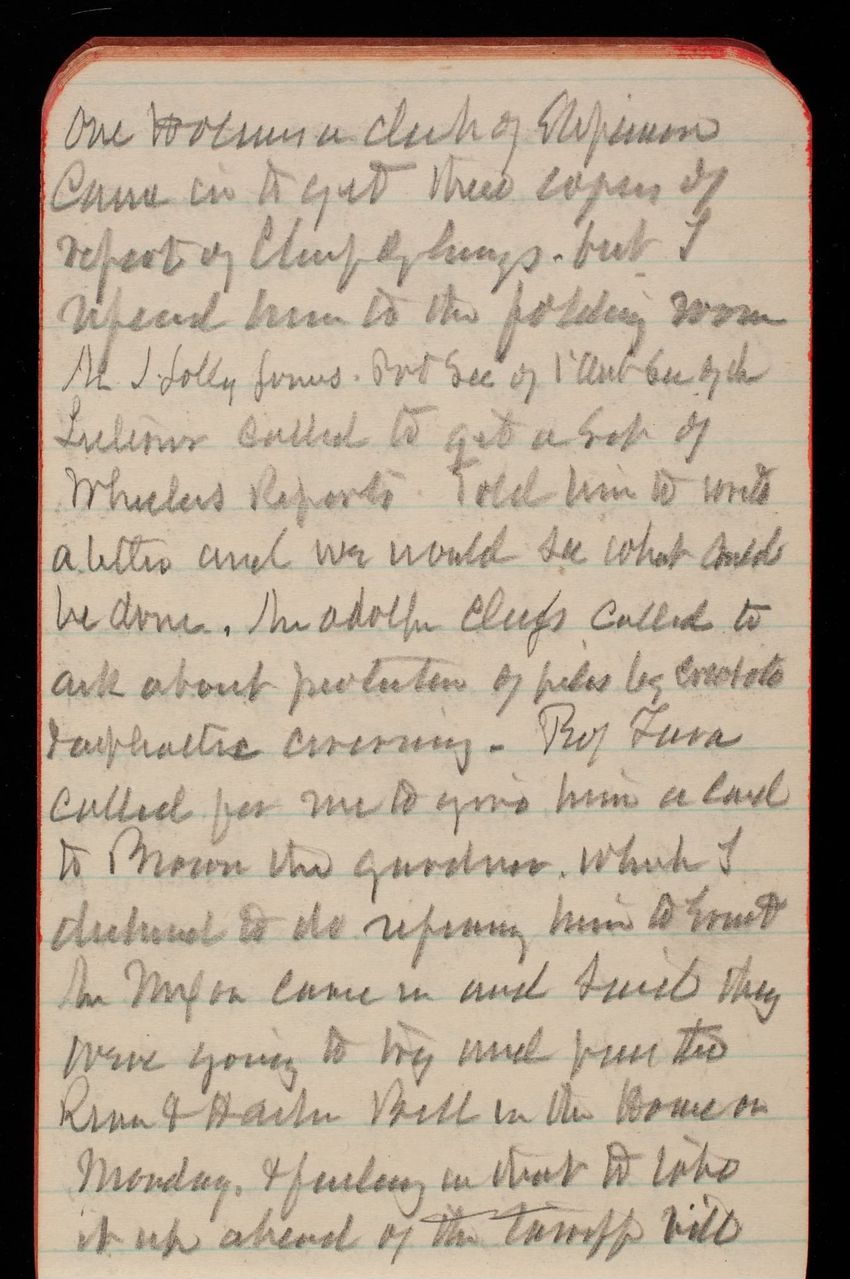 One Holmes a clerk of
Came in to get three copies of
report of Chief of Engrs. but I
refered him to the folding room
Mr J. Jolly Jones. Prot Sec of
called to get a Sett of
Wheelers Reports Told him to write
a letter and we would see what could
be done. Mr Adolph Clufs called to
ask about protection of piles by creosote
& asphaltic covering - Prof
called for me to give him a Card
to Brown the gardner. which I
declined to do refering him to Ernst
Mr came in and Said they
were going to try and pass the
River & Harbor Bill in the House on
Monday. & failing in that to take
it up ahead of the tariff bill